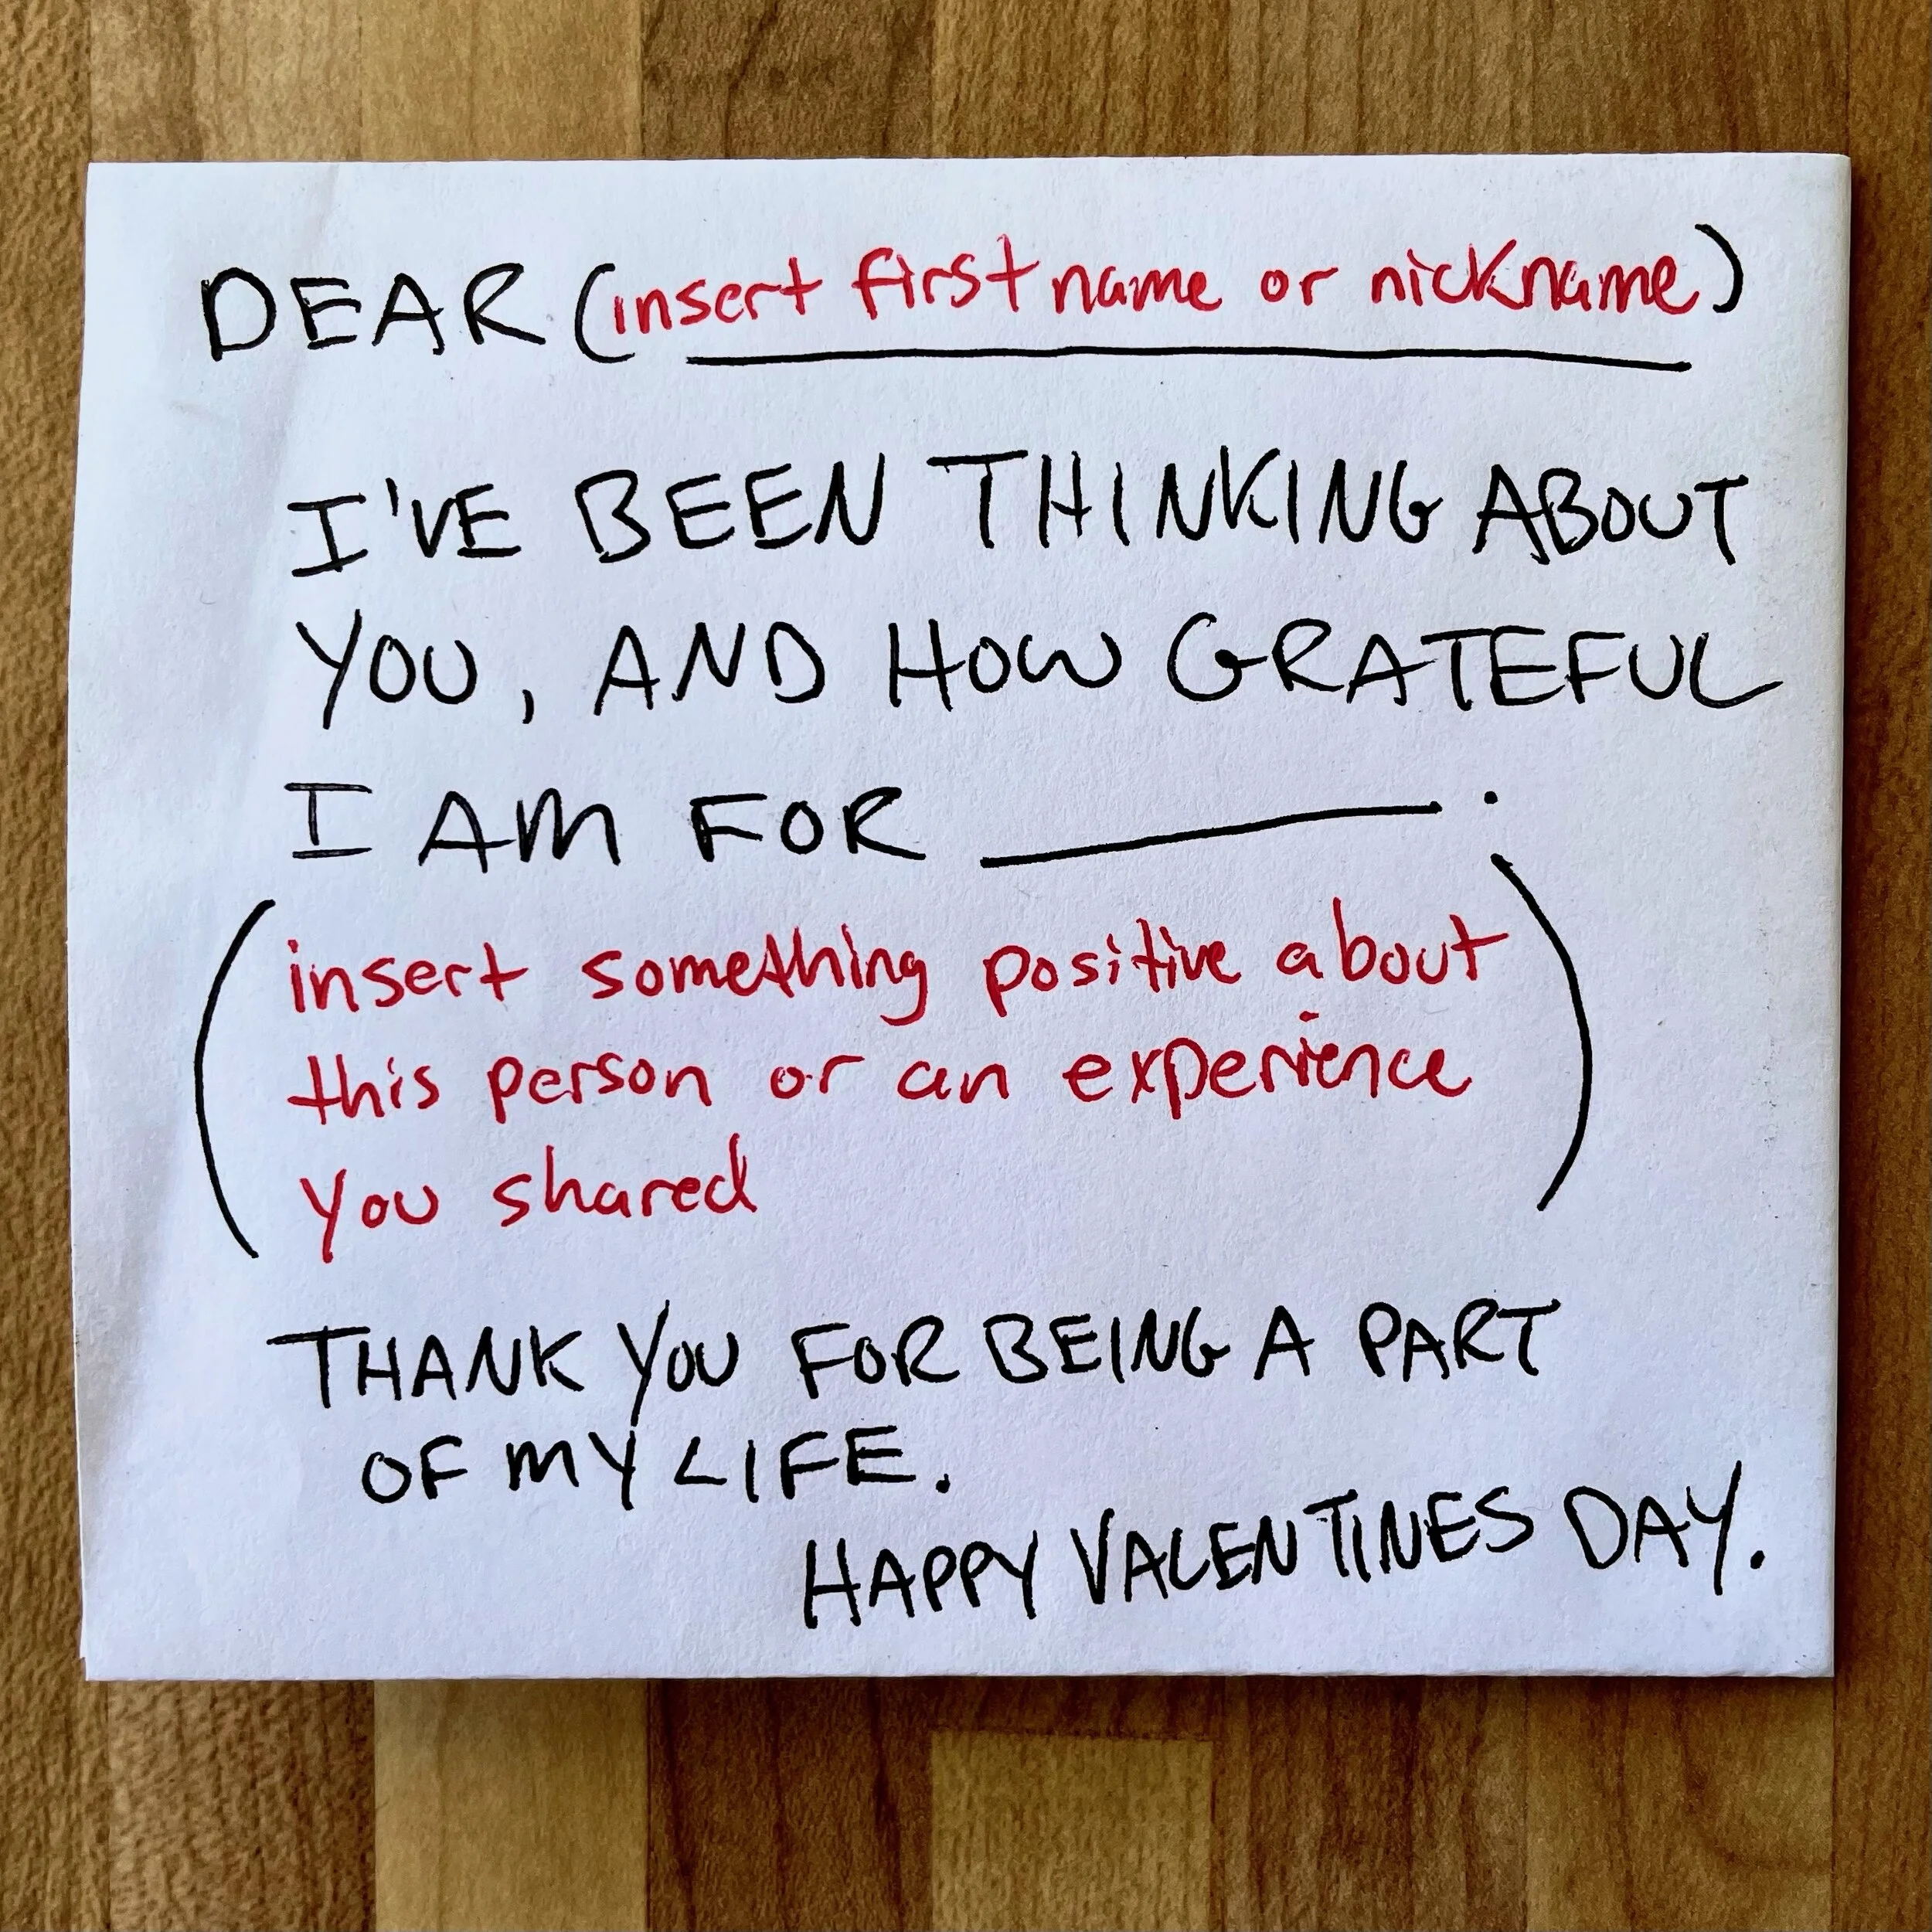 DEAR (insert first name or nickname)
I'VE BEEN THINKING ABOUT
YOU, AND HOW GRATEFUL
I AM FOR ________.
(insert something positive about
this person or an experience
you shared)
THANK YOU FOR BEING A PART
OF MY LIFE.
HAPPY VALENTINES DAY.